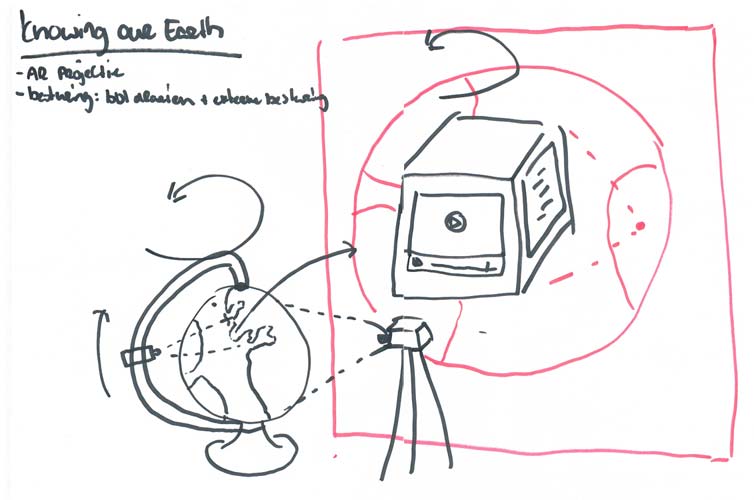 Knowing our Earth
- AR Projectie
- besturing: bol draaien + externe besturing